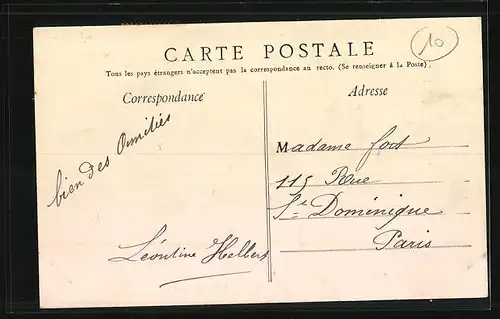 10
CARTE POSTALE
Tous les pays étrangers n'acceptent pas la correspondance au recto. (Se renseigner à la Poste).
Correspondance
Adresse
bien des Amitiés
Léontine Helbert
Madame Fort
115 Rue
St Dominique
Paris